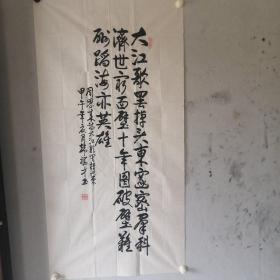 大江歌罢掉头东邃密群科
济世穷面壁十年图破壁难
酬蹈海亦英雄
周恩来诗大江歌罢掉头东
甲午年